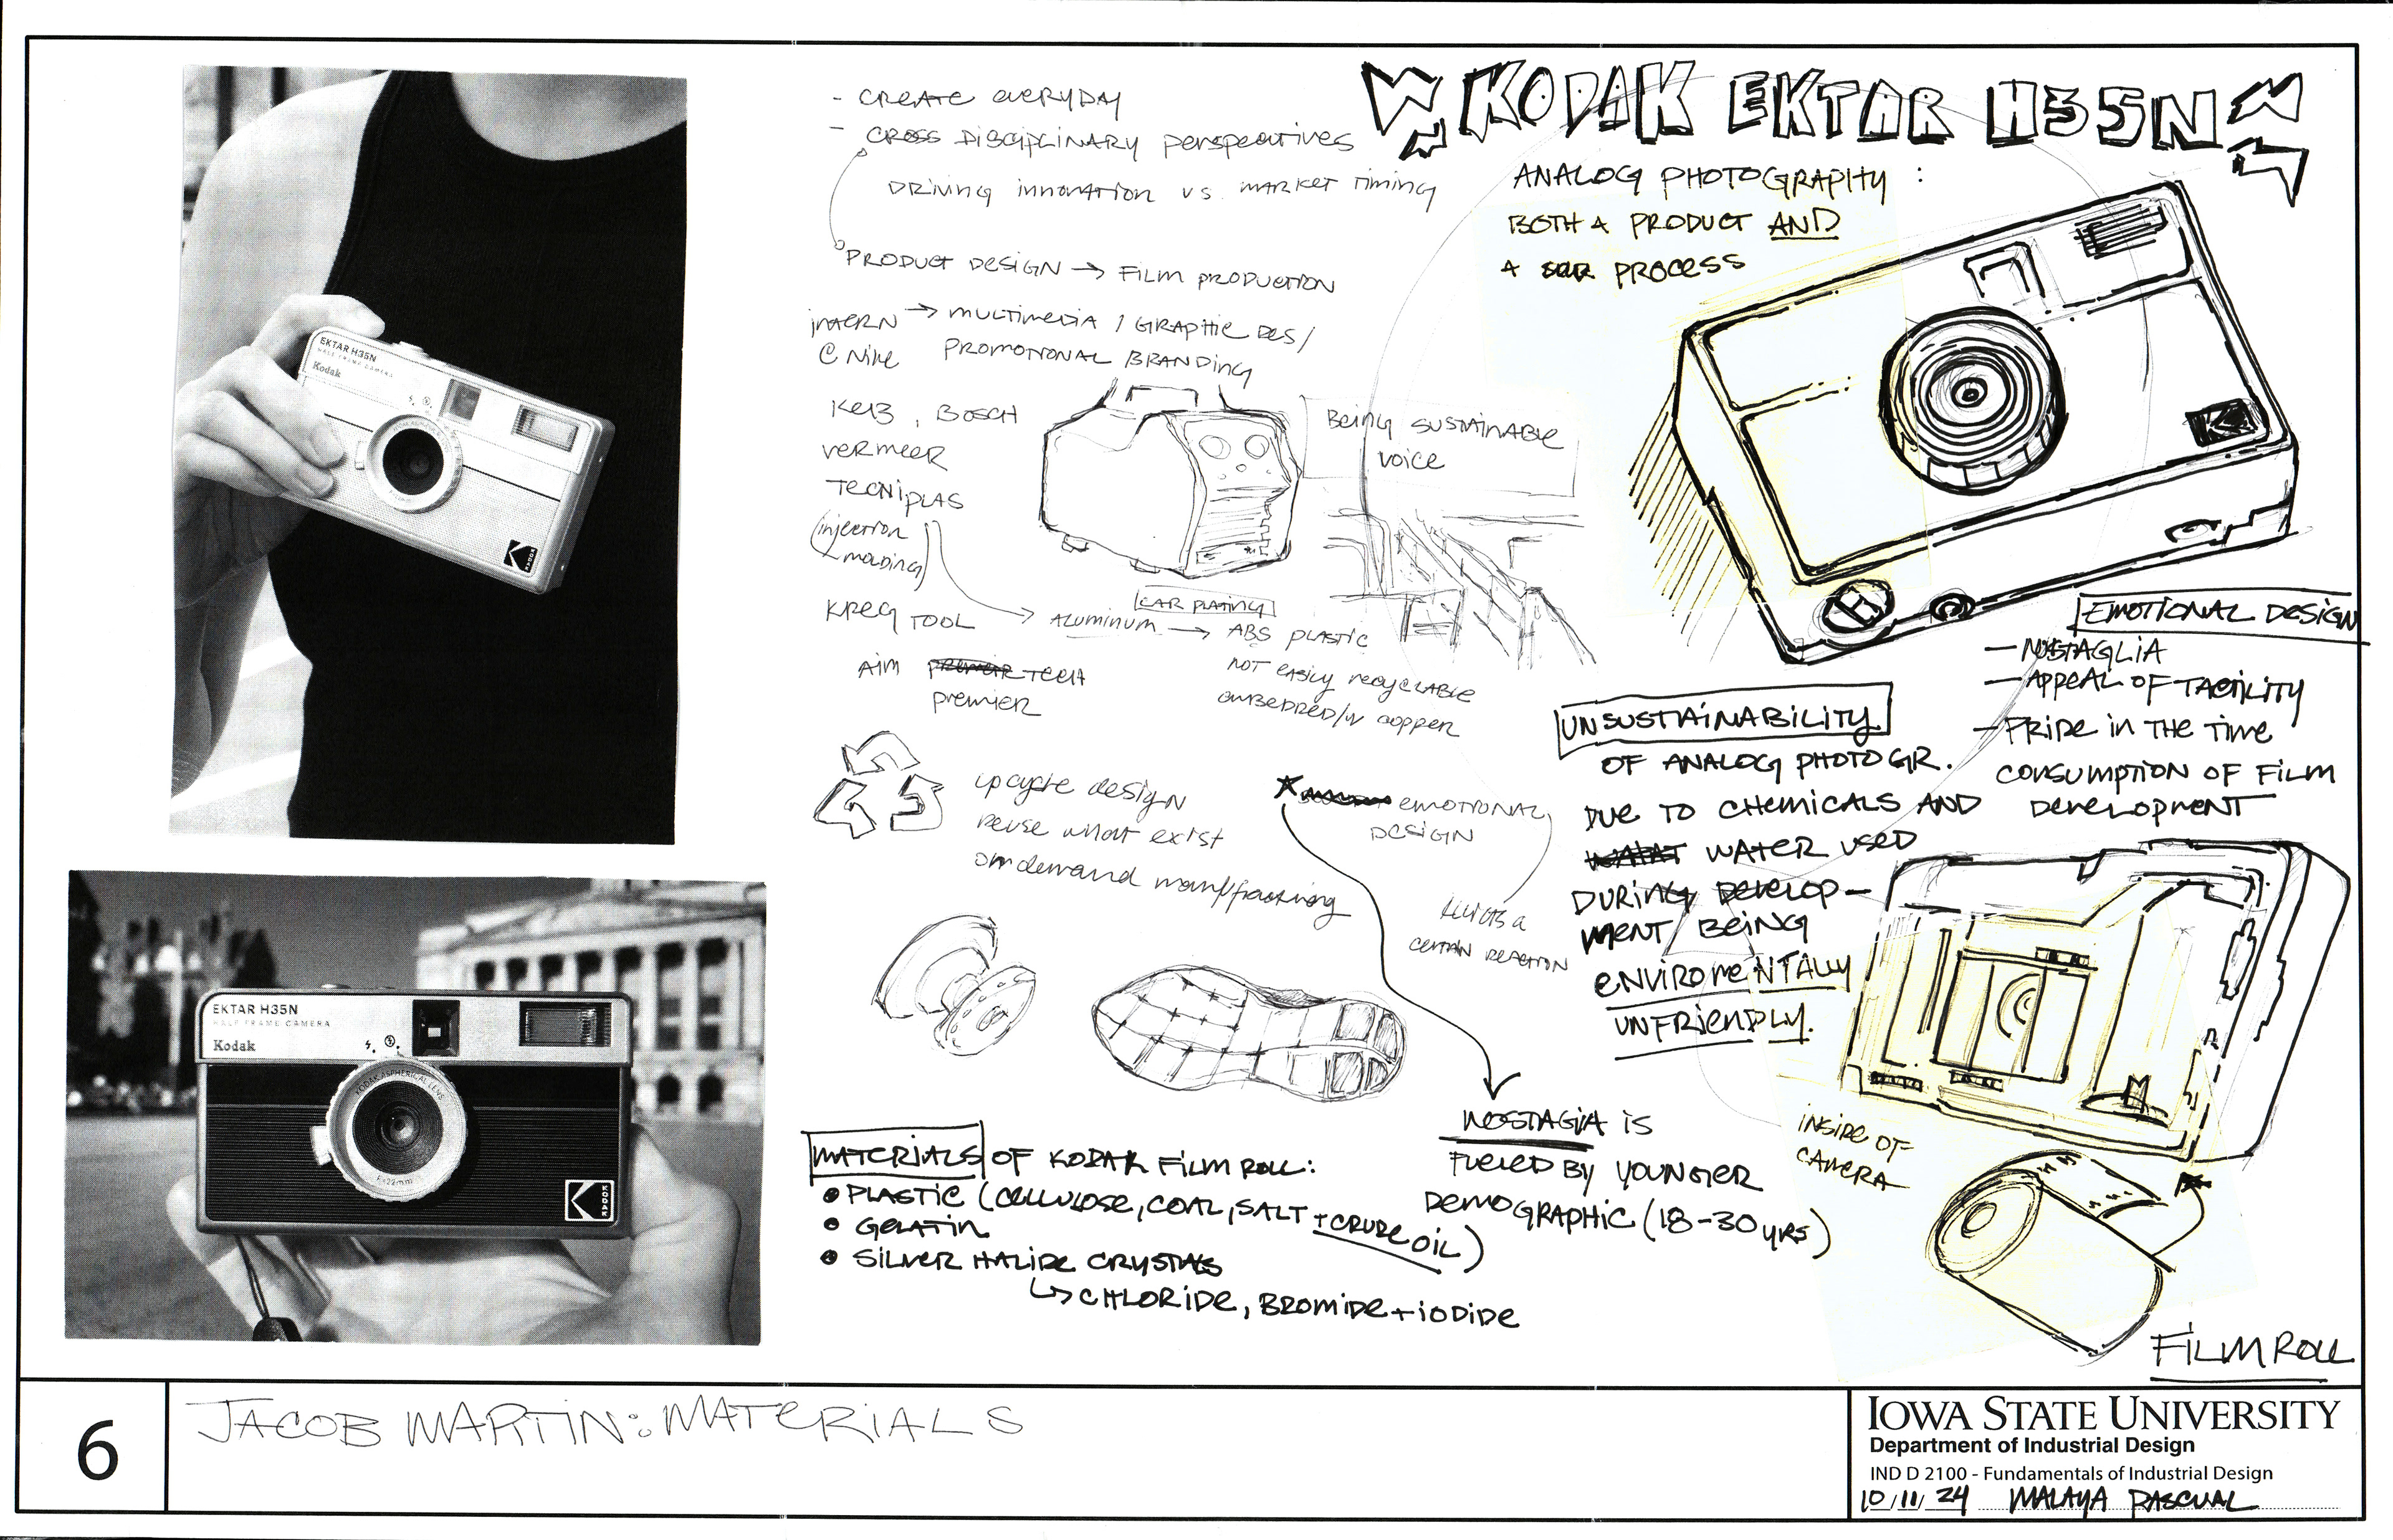 - CREATE EVERYDAY
- CROSS DISCIPLINARY PERSPECTIVES
DRIVING INNOVATION VS. MARKET TIMING
PRODUCT DESIGN → FILM PRODUCTION
INTERN → MULTIMEDIA / GRAPHIC DES/
@ NIKE PROMOTIONAL BRANDING
, BOSCH
VERMEER
TECNIPLAS
(injection
molding)
KREG TOOL
→ ALUMINUM → ABS PLASTIC
CAR PLATING
NOT EASILY RECYCLABLE
EMBEDDED/W COPPER
AIM TECH
PREMIER
BEING SUSTAINABLE
VOICE
upcycle design
reuse what exist
EMOTIONAL
DESIGN
ELICITS A
CERTAIN REACTION
MATERIALS OF KODAK FILM ROLL:
• PLASTIC (CELLULOSE, COAL, SALT + CRUDE OIL)
• GELATIN
• SILVER HALIDE CRYSTALS
↳ CHLORIDE, BROMIDE + IODIDE
NOSTAGIA IS
FUELED BY YOUNGER
DEMOGRAPHIC (18-30 YRS)
KODAK EKTAR H35N
ANALOG PHOTOGRAPHY :
BOTH A PRODUCT AND
A PROCESS
K
H
EMOTIONAL DESIGN
— NOSTAGLIA
— APPEAL OF TACTILITY
— PRIDE IN THE TIME
CONSUMPTION OF FILM
DEVELOPMENT
UNSUSTAINABILITY
OF ANALOG PHOTOGR.
DUE TO CHEMICALS AND
WATER USED
DURING DEVELOP-
MENT BEING
ENVIROMENTALLY
UNFRIENDLY.
INSIDE OF
CAMERA
FILM ROLL
EKTAR H35N
HALF FRAME CAMERA
Kodak
KODAK
EKTAR H35N
HALF FRAME CAMERA
Kodak
KODAK ASPHERICAL LENS
F=22mm
KODAK
6
JACOB MARTIN: MATERIALS
IOWA STATE UNIVERSITY
Department of Industrial Design
IND D 2100 - Fundamentals of Industrial Design
10/11/24 MALAYA PASCUAL